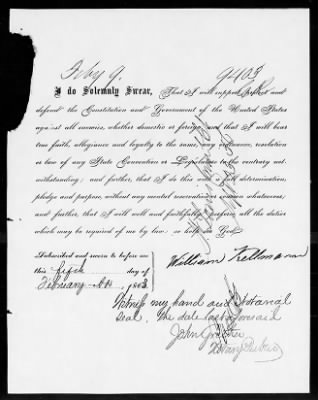 Feby 9. 9403
I do Solemnly Swear, That I will support, protect and
defend the Constitution and Government of the United States
against all enemies, whether domestic or foreign, and that I will bear
true faith, allegiance and loyalty to the same, any ordinance, resolution
or law of any State Convention or Legislature to the contrary not-
withstanding; and further, that I do this with a full determination,
pledge and purpose, without any mental reservation or evasion whatsoever;
and further, that I will well and faithfully perform all the duties
which may be required of me by law: so help me God.
Subscribed and sworn to before me
this fifth day of
February A.D. 1863
William
Witness my hand and Notarial
seal. The date last aforesaid
John
Notary Public